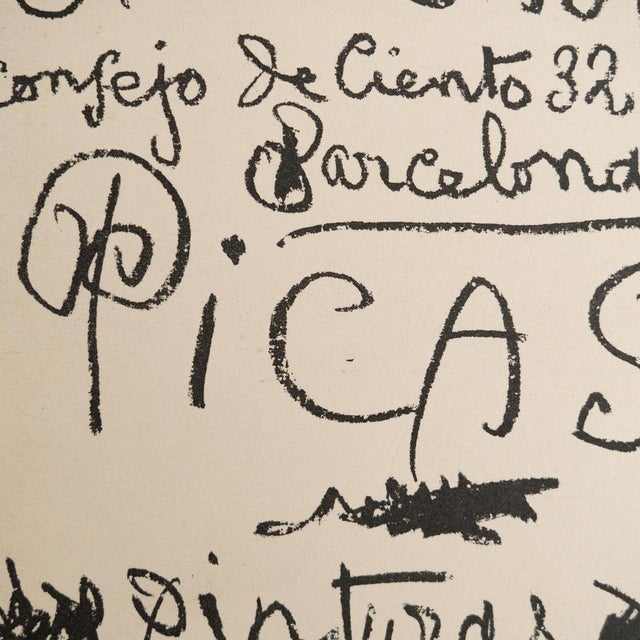 Consejo de Ciento 32
Barcelona
PiCAS
Pinturas